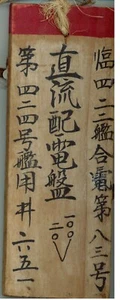 臨四二二艦合電第八三号
直流配電盤
一〇〇
二〇V
第四二四号艦用井六五一